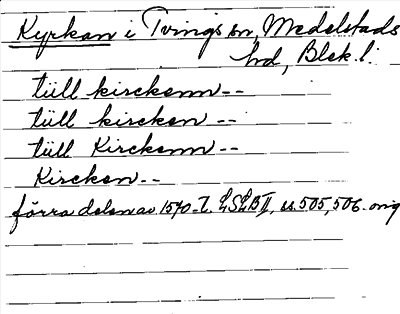 Kyrkan i Tvings sn, Medelstads
hd, Blek. l.
tüll kirckenn--
tüll kircken--
tüll Kirckenn--
Kircken--
förra delen av 1570-t. LSLB II, ss. 505, 506. orig